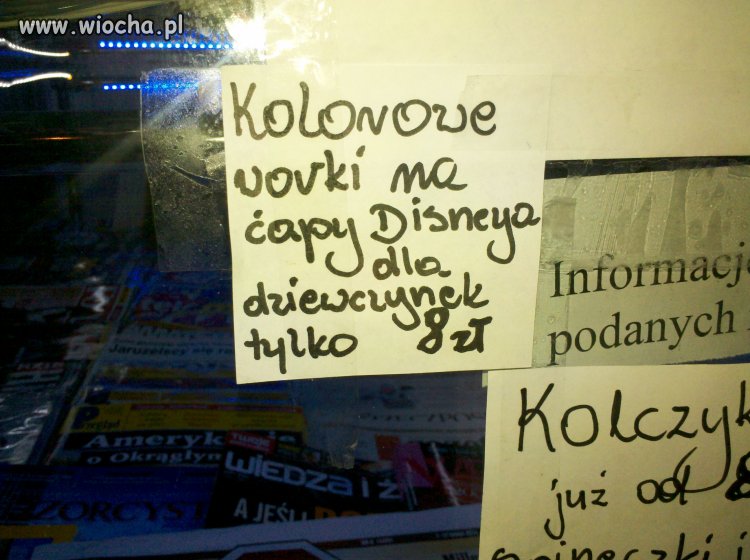 www.wiocha.pl
Kolorowe
worki na
ćapy Disneya
dla
dziewczynek
tylko 8 zł
Informacje
podanych
Kolczyk
już od 8
Ameryk
o Okrągłym
WIEDZA I Ż
A JEŚLI
ZORCYST